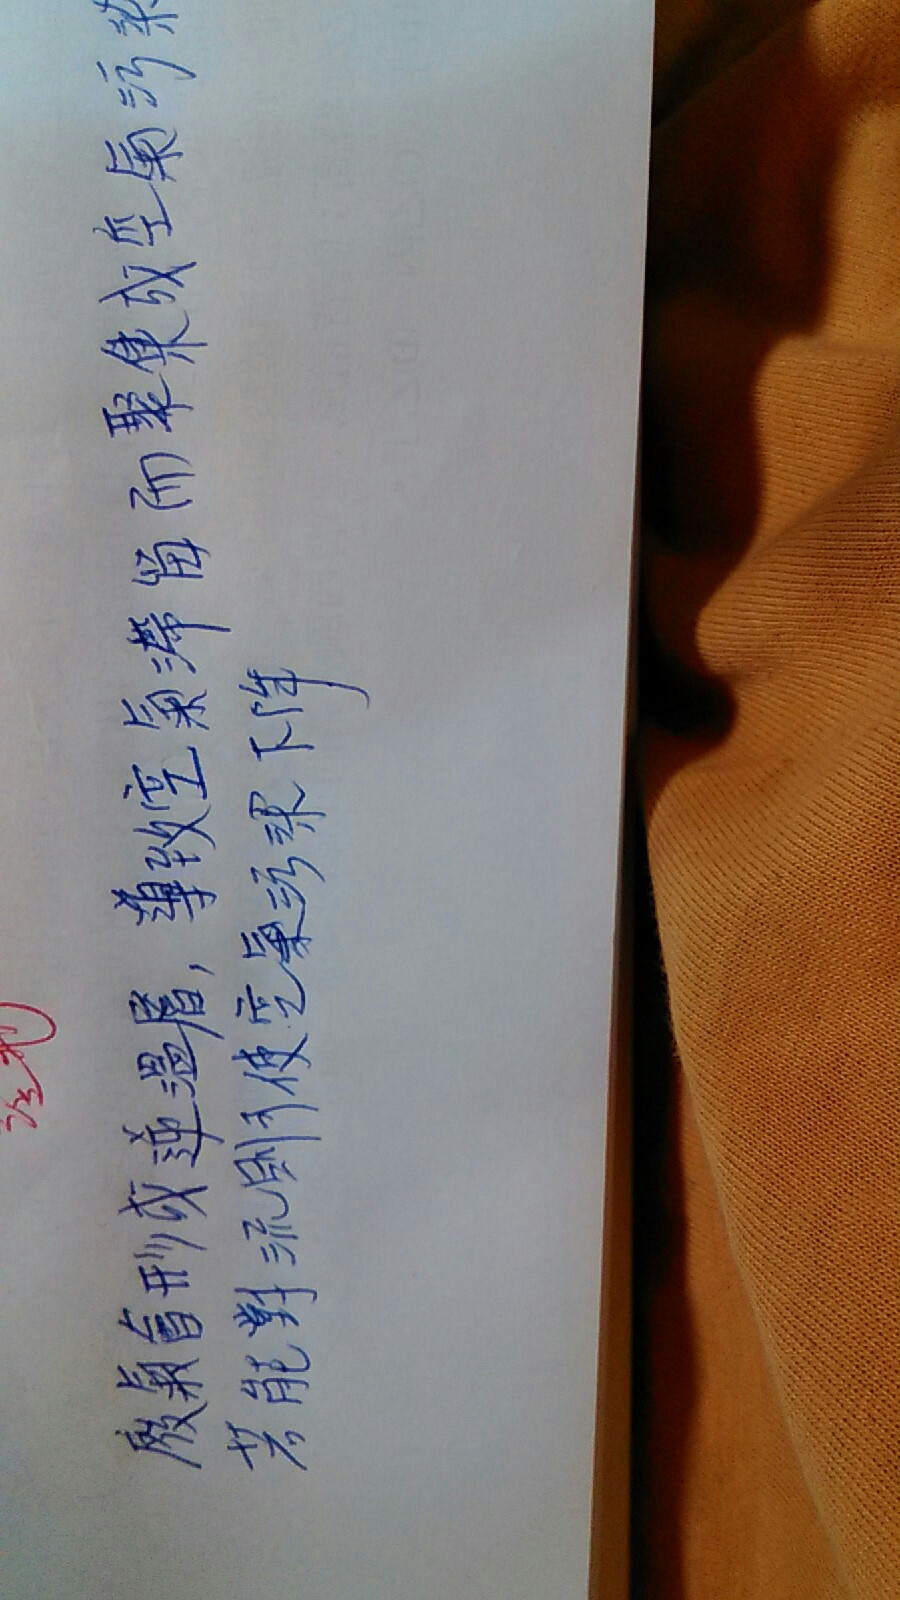 廢氣會形成逆溫層,導致空氣滯留而聚集成空氣污染
若能對流則可使空氣污染下降